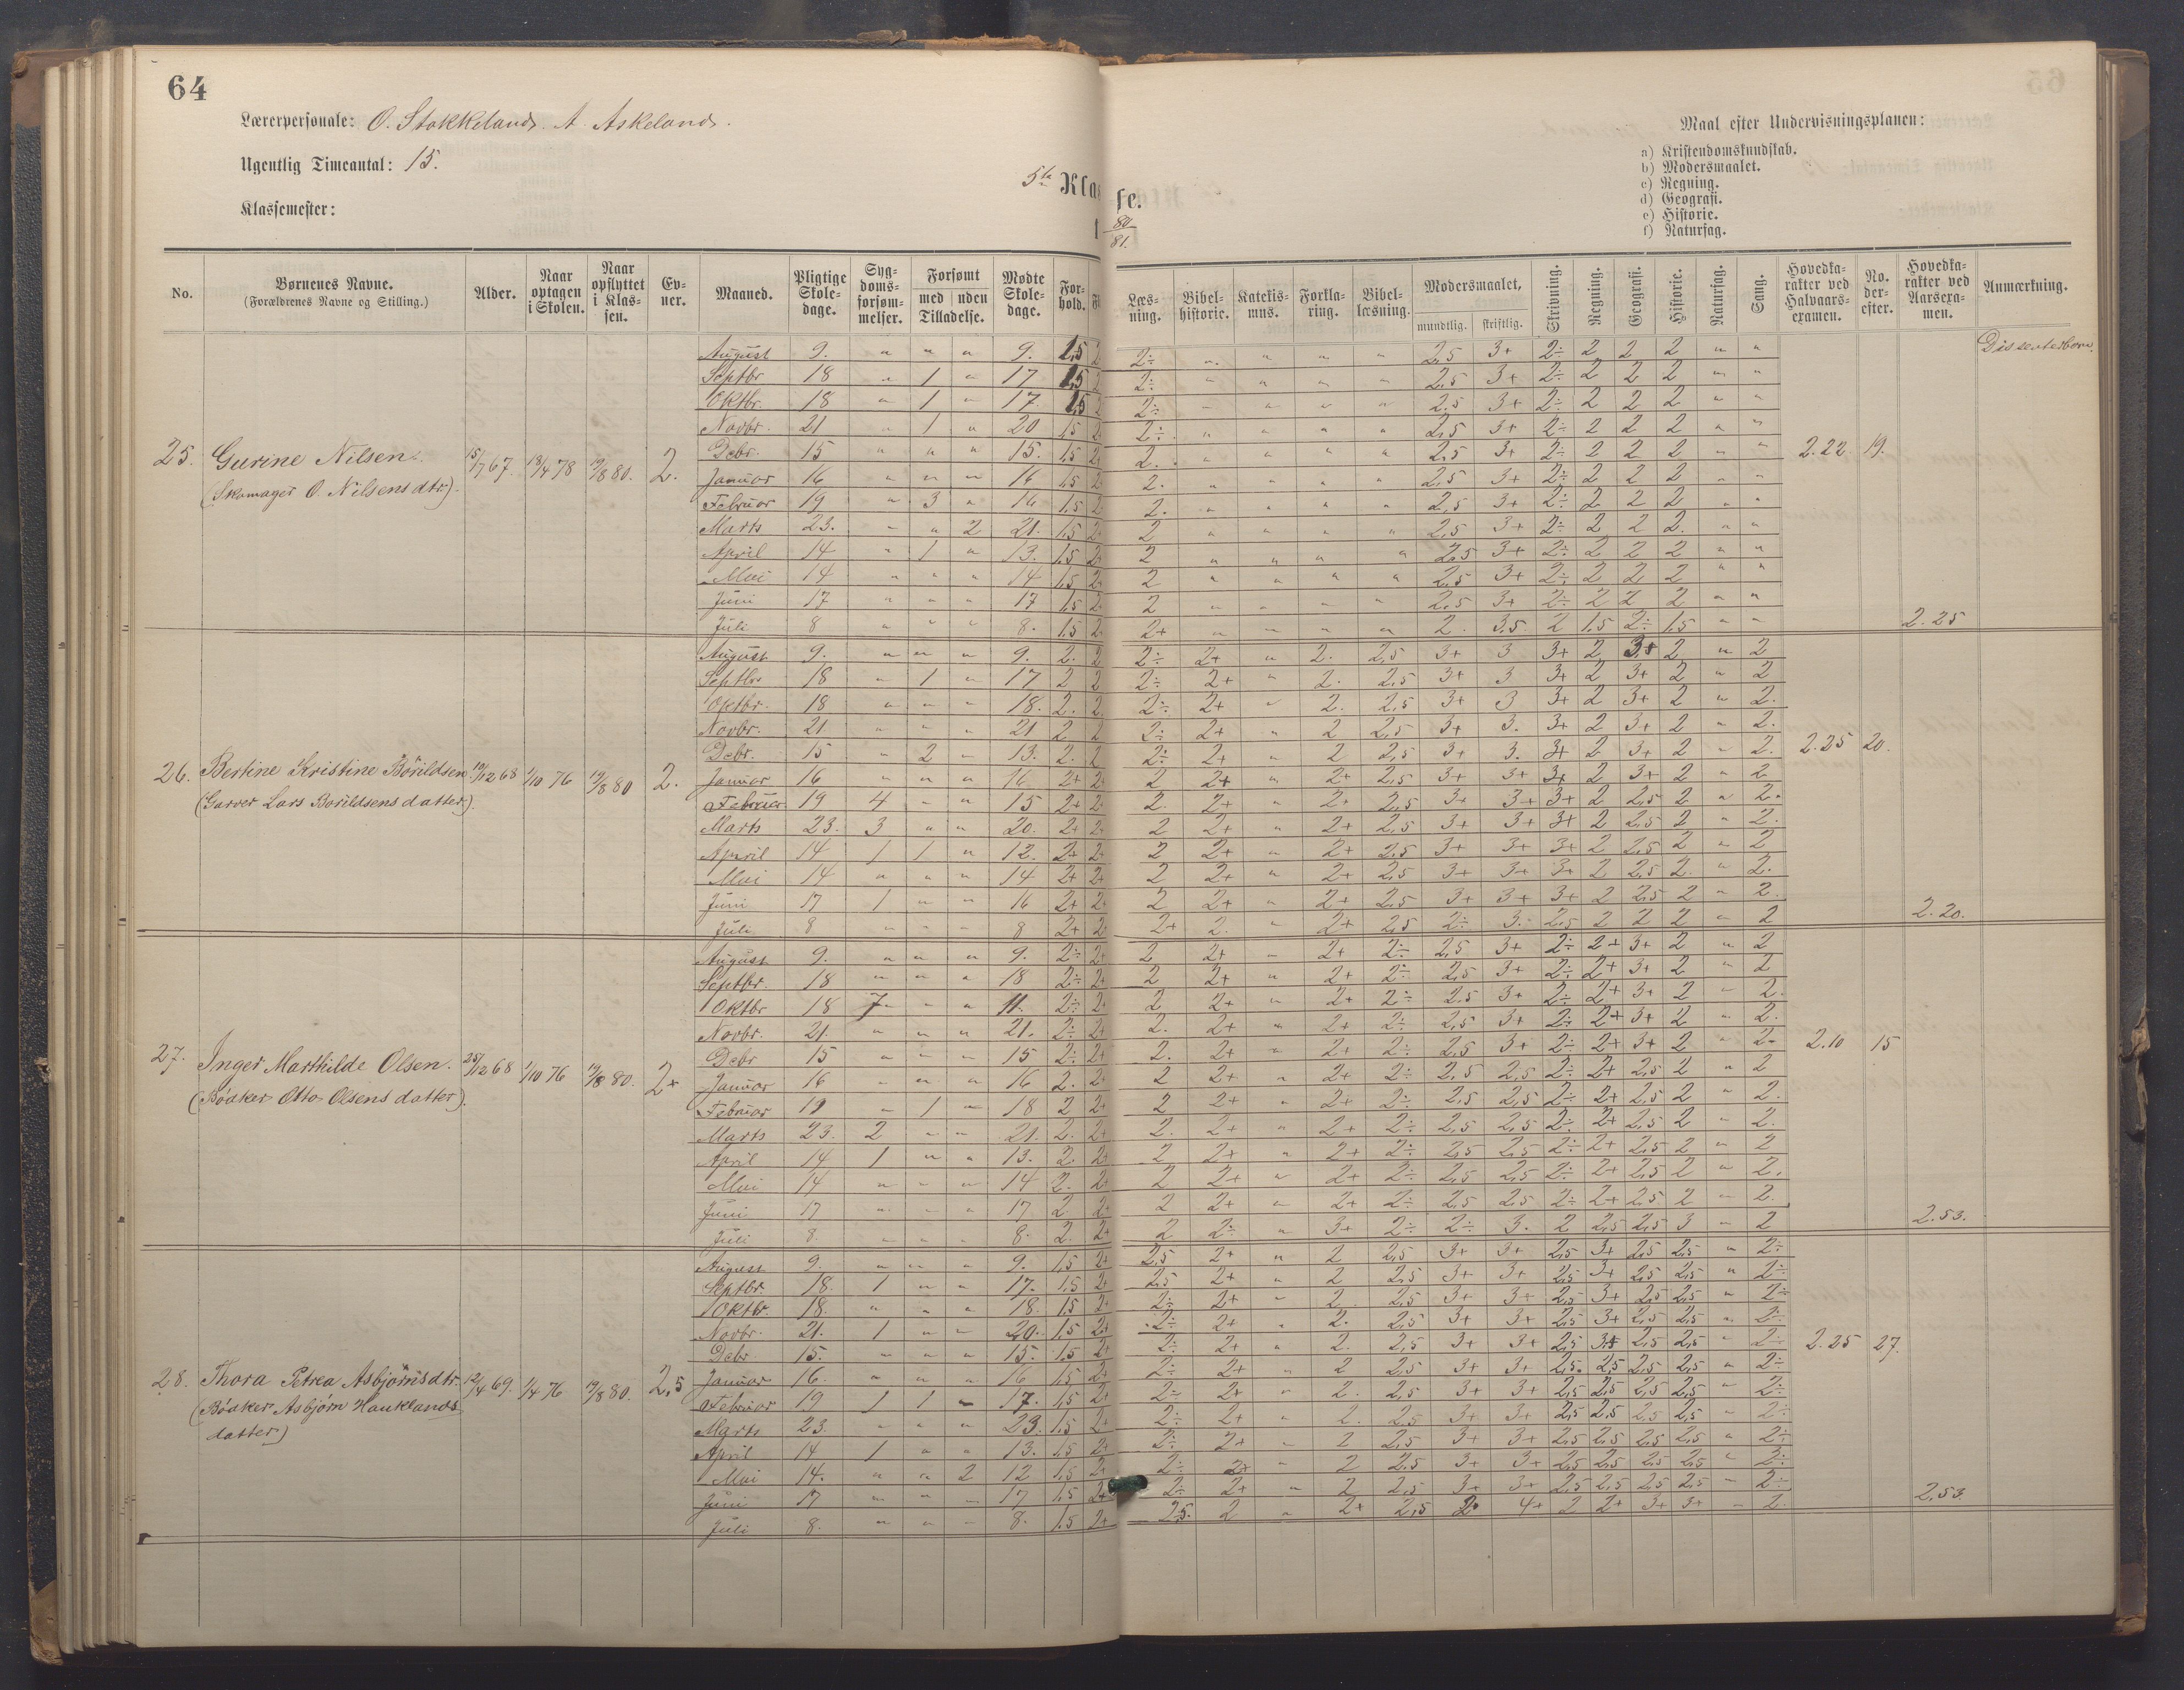 64
Lærerpersonale: O. Stokkeland. A. Askeland.
Ugentlig Timeantal: 15.
Klassemester:
5te Klasse.
80/81.
Maal efter Undervisningsplanen:
a) Kristendomskundskab.
b) Modersmaalet.
c) Regning.
d) Geografi.
e) Historie.
f) Naturfag.
No. | Børnenes Navne. (Forældrenes Navne og Stilling.) | Alder. | Naar optagen i Skolen. | Naar opflyttet i Klassen. | Evner. | Maaned. | Pligtige Skoledage. | Sygdomsforsømmelser. | Forsømt med Tilladelse. | uden Tilladelse. | Mødte Skoledage. | Forhold. | F
Læsning. | Bibelhistorie. | Katekismus. | Forklaring. | Bibellæsning. | Modersmaalet, mundtlig. | skriftlig. | Skrivning. | Regning. | Geografi. | Historie. | Naturfag. | Sang. | Hovedkarakter ved Halvaarsexamen. | No. derefter. | Hovedkarakter ved Aarsexamen. | Anmærkning.
25. Gurine Nilsen. (Skomager O. Nilsens dtr.) 15/7 67. 18/4 78 19/8 80. 2.
August 9. " " " 9. 1,5 2 | 2÷ " " " " 2,5 3+ 2÷ 2 2 2 " " Dissenterbarn.
Septbr 18 " 1 " 17 1,5 2 | 2÷ " " " " 2,5 3+ 2÷ 2 2 2 " "
Oktbr. 18 " 1 " 17. 1,5 2 | 2÷ " " " " 2,5 3+ 2÷ 2 2 2 " "
Novbr. 21 " 1 " 20 1,5 2 | 2÷ " " " " 2,5 3+ 2÷ 2 2 2 " "
Debr. 15 " " " 15. 1,5 2 | 2. " " " " 2,5 3+ 2÷ 2 2 2 " " 2.22. 19.
Januar 16 " " " 16 1,5 2 | 2. " " " " 2,5 3+ 2÷ 2 2 2 " "
Februar 19 " 3 " 16 1,5 2 | 2. " " " " 2,5 3+ 2÷ 2 2 2 " "
Marts 23. " " 2 21. 1,5 2 | 2 " " " " 2,5 3+ 2÷ 2 2 2. " "
April 14 " 1 " 13. 1,5 2 | 2 " " " " 2,5 3+ 2÷ 2 2 2 " "
Mai 14 " " " 14 1,5 2+ | 2 " " " " 2,5 3+ 2÷ 2 2 2 " "
Juni 17 " " " 17 1,5 2 | 2 " " " " 2,5 3+ 2÷ 2 2 2 " "
Juli 8 " " " 8. 1,5 2 | 2+ " " " " 2. 3,5 2 1,5 2÷ 1,5 " " 2.25
26. Bertine Kristine Börildsen (Garver Lars Borildsens datter). 19/12 68 1/10 76 19/8 80 2.
August 9. " " " 9. 2. 2 | 2÷ 2+ " 2. 2,5 3+ 3 3+ 2 3+ 2 " 2
Septbr 18 " 1 " 17 2 2 | 2÷ 2+ " 2. 2,5 3+ 3 3+ 2 3+ 2 " 2
Oktbr. 18 " " " 18. 2. 2 | 2÷ 2+ " 2. 2,5 3+ 3 3+ 2 3+ 2 " 2.
Novbr. 21 " " " 21 2 2 | 2÷ 2+ " 2 2,5 3+ 3. 3+ 2 3+ 2 " 2.
Debr. 15 " 2 " 13. 2. 2 | 2÷ 2+ " 2 2,5 3+ 3. 3+ 2 3+ 2 " 2. 2.25 20.
Januar 16 " " " 16 2+ 2 | 2 2+ " 2+ 2,5 3+ 3+ 3+ 2 3+ 2 " 2
Februar 19 4 " " 15 2+ 2 | 2. 2+ " 2+ 2,5 3+ 3+ 3+ 2 2,5 2 " 2.
Marts 23. 3 " " 20. 2+ 2 | 2 2+ " 2+ 2,5 3+ 3+ 3+ 2 2,5 2 " 2.
April 14 1 1 " 12. 2+ 2 | 2 2+ " 2+ 2,5 3+ 3+ 3+ 2 2,5 2 " 2
Mai 14 " " " 14 2+ 2+ | 2 2+ " 2+ 2,5 3+ 3+ 3+ 2 2,5 2. " 2.
Juni 17 1 " " 16 2+ 2 | 2 2+ " 2+ 2,5 3+ 3+ 3+ 2 2,5 2 " 2.
Juli 8 " " " 8 2+ 2 | 2+ 2. " 2+ 2,5 2÷ 3. 2,5 2 2 2 " 2 2.20.
27. Inger Marthilde Olsen. (Bødker Otto Olsens datter). 25/12 68 1/10 76 19/8 80. 2+
August 9. " " " 9. 2÷ 2+ | 2 2+ " 2+ 2÷ 2,5 3+ 2÷ 2+ 3+ 2 " 2
Septbr. 18 " " " 18 2÷ 2+ | 2 2+ " 2+ 2÷ 2,5 3+ 2÷ 2+ 3+ 2 " 2
Oktbr 18 7 " " 11. 2÷ 2 | 2 2+ " 2+ 2÷ 2,5 3+ 2÷ 2+ 3+ 2 " 2.
Novbr. 21. " " " 21. 2÷ 2+ | 2. 2+ " 2+ 2÷ 2,5 3+ 2÷ 2+ 3+ 2 " 2.
Debr 15 " " " 15 2÷ 2+ | 2. 2+ " 2+ 2÷ 2,5 3+ 2÷ 2+ 3+ 2 " 2 2.10 15
Januar 16 " " " 16 2. 2+ | 2 2+ " 2+ 2÷ 2,5 2,5 2÷ 2+ 2,5 2 " 2
Februar 19 " 1 " 18 2 2+ | 2 2+ " 2+ 2÷ 2,5 2,5 2÷ 2+ 2,5 2 " 2.
Marts 23. 2 " " 21. 2. 2+ | 2. 2+ " 2+ 2÷ 2,5 2,5 2÷ 2+ 2,5 2 " 2.
April 14 1 " " 13. 2. 2+ | 2 2+ " 2+ 2÷ 2,5 2,5 2÷ 2+ 2,5 2 " 2
Mai 14 " " " 14 2. 2+ | 2 2+ " 2+ 2÷ 2,5 2,5 2÷ 2+ 2,5 2 " 2.
Juni 17 " " " 17 2 2+ | 2 2+ " 2+ 2÷ 2,5 2,5 2÷ 2+ 2,5 2 " 2.
Juli 8. " " " 8. 2. 2+ | 2 2÷ " 3+ 2÷ 2÷ 3. 2 2,5 2,5 3 " 2 2.53.
28. Thora Petrea Asbjörnsdtr. (Bödker Asbjørn Hauklands datter) 12/4 69. 1/4 76 19/8 80. 2,5
August 9. " " " 9. 1,5 2+ | 2,5 2+ " 2 2,5 3+ 3+ 2,5 3+ 2,5 2,5 " 2÷
Septbr. 18. 1 " " 17. 1,5 2+ | 2,5 2+ " 2 2,5 3+ 3+ 2,5 3+ 2,5 2,5 " 2÷
Oktbr. 18. " " " 18. 1,5 2+ | 2÷ 2+ " 2. 2,5 3+ 3+ 2,5 3+ 2,5 2,5 " 2÷
Novbr. 21. 1 " " 20. 1,5 2+ | 2÷ 2+ " 2. 2,5 3+ 3+ 2,5 3+ 2,5 2,5 " 2÷
Debr. 15. " " " 15. 1,5 2+ | 2÷ 2+ " 2. 2,5 3+ 3+ 2,5 3+ 2,5 2,5 " 2÷ 2.25 27.
Januar 16. " " " 16 1,5 2+ | 2÷ 2+ " 2 2,5 3+ 3+ 2,5 2,5 2,5 2,5 " 2÷
Februar 19 1 1 " 17. 1,5 2+ | 2÷ 2+ " 2. 2,5 3+ 3+ 2,5 2,5 2,5 2,5 " 2÷
Marts 23. " " " 23. 1,5 2+ | 2÷ 2+ " 2. 2,5 3+ 3+ 2,5 2,5 2,5 2,5 " 2÷
April 14 1 " " 13. 1,5 2+ | 2÷ 2+ " 2 2,5 3+ 3+ 2,5 2,5 2,5 2,5 " 2÷
Mai 14. " " 2 12 1,5 2+ | 2÷ 2+ " 2 2,5 3+ 3+ 2,5 2,5 2,5 2,5 " 2÷
Juni 17 " " " 17 1,5 2+ | 2÷ 2+ " 2 2,5 3+ 3+ 2,5 2,5 2,5 2,5 " 2÷
Juli 8. " " " 8. 1,5 2+ | 2,5. 2 " 2+ 2,5 2+ 4+ 2 2+ 3+ 3+ " 2. 2,53.